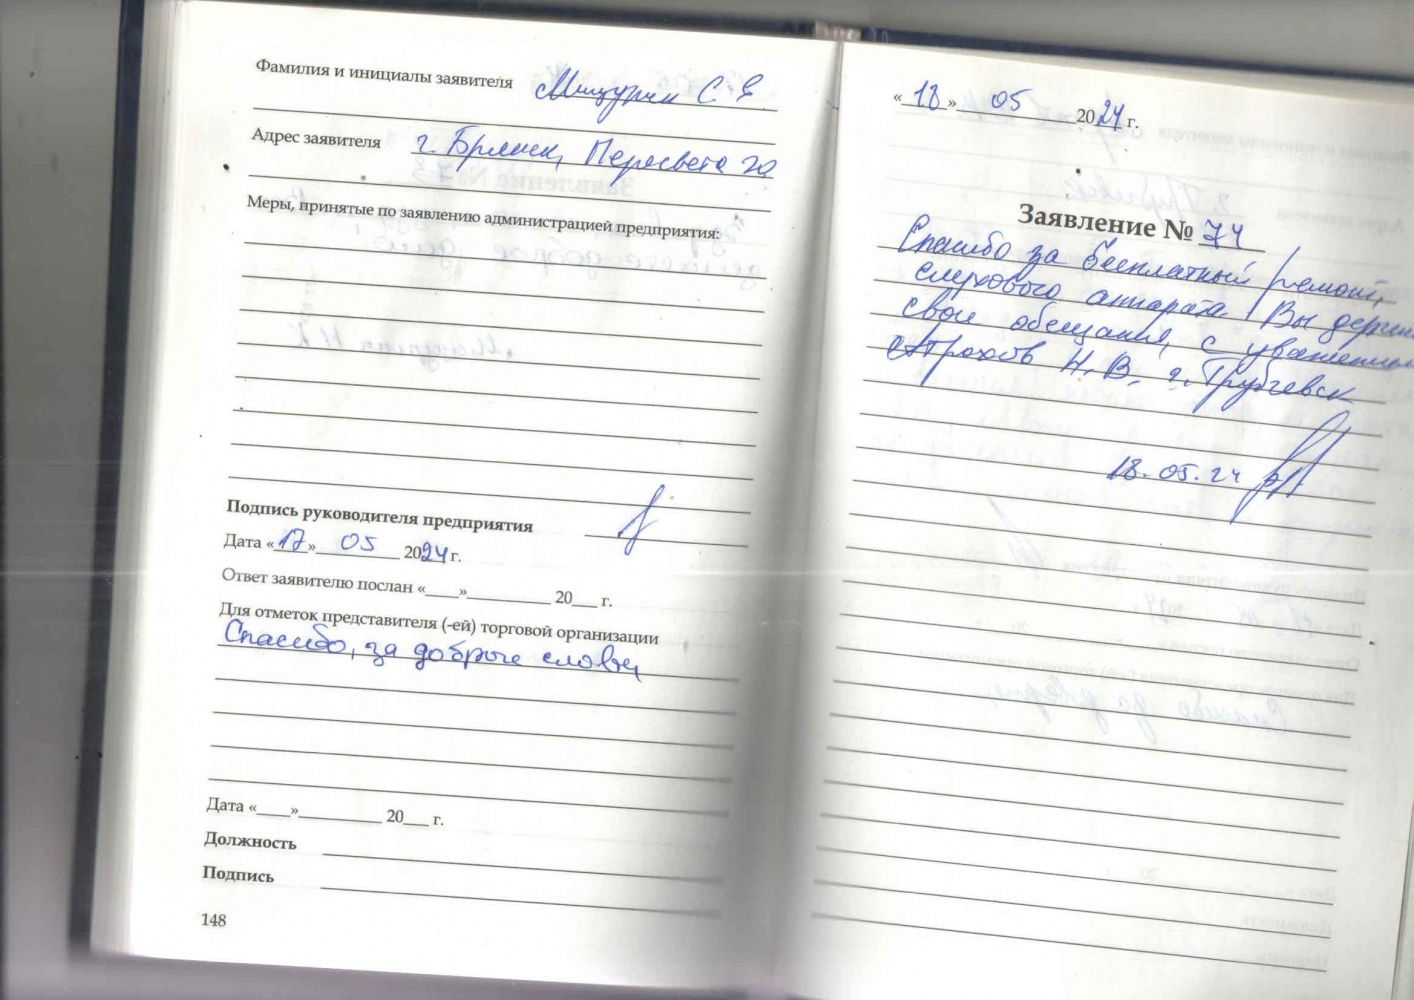 Фамилия и инициалы заявителя Мищурин С Е
Адрес заявителя г. Брянск, Пересвета 2а
Меры, принятые по заявлению администрацией предприятия:
Подпись руководителя предприятия
Дата «17» 05 2024 г.
Ответ заявителю послан «___»__________ 20___ г.
Для отметок представителя (-ей) торговой организации
Спасибо, за добрые слова,
Дата «___»__________ 20___ г.
Должность
Подпись
148
«18» 05 2024 г.
Заявление № 74
Спасибо за бесплатный ремонт,
слухового аппарата. Вы держите
свои обещания, с уважением
Строхов Н. В. г. Трубчевск
18.05.24